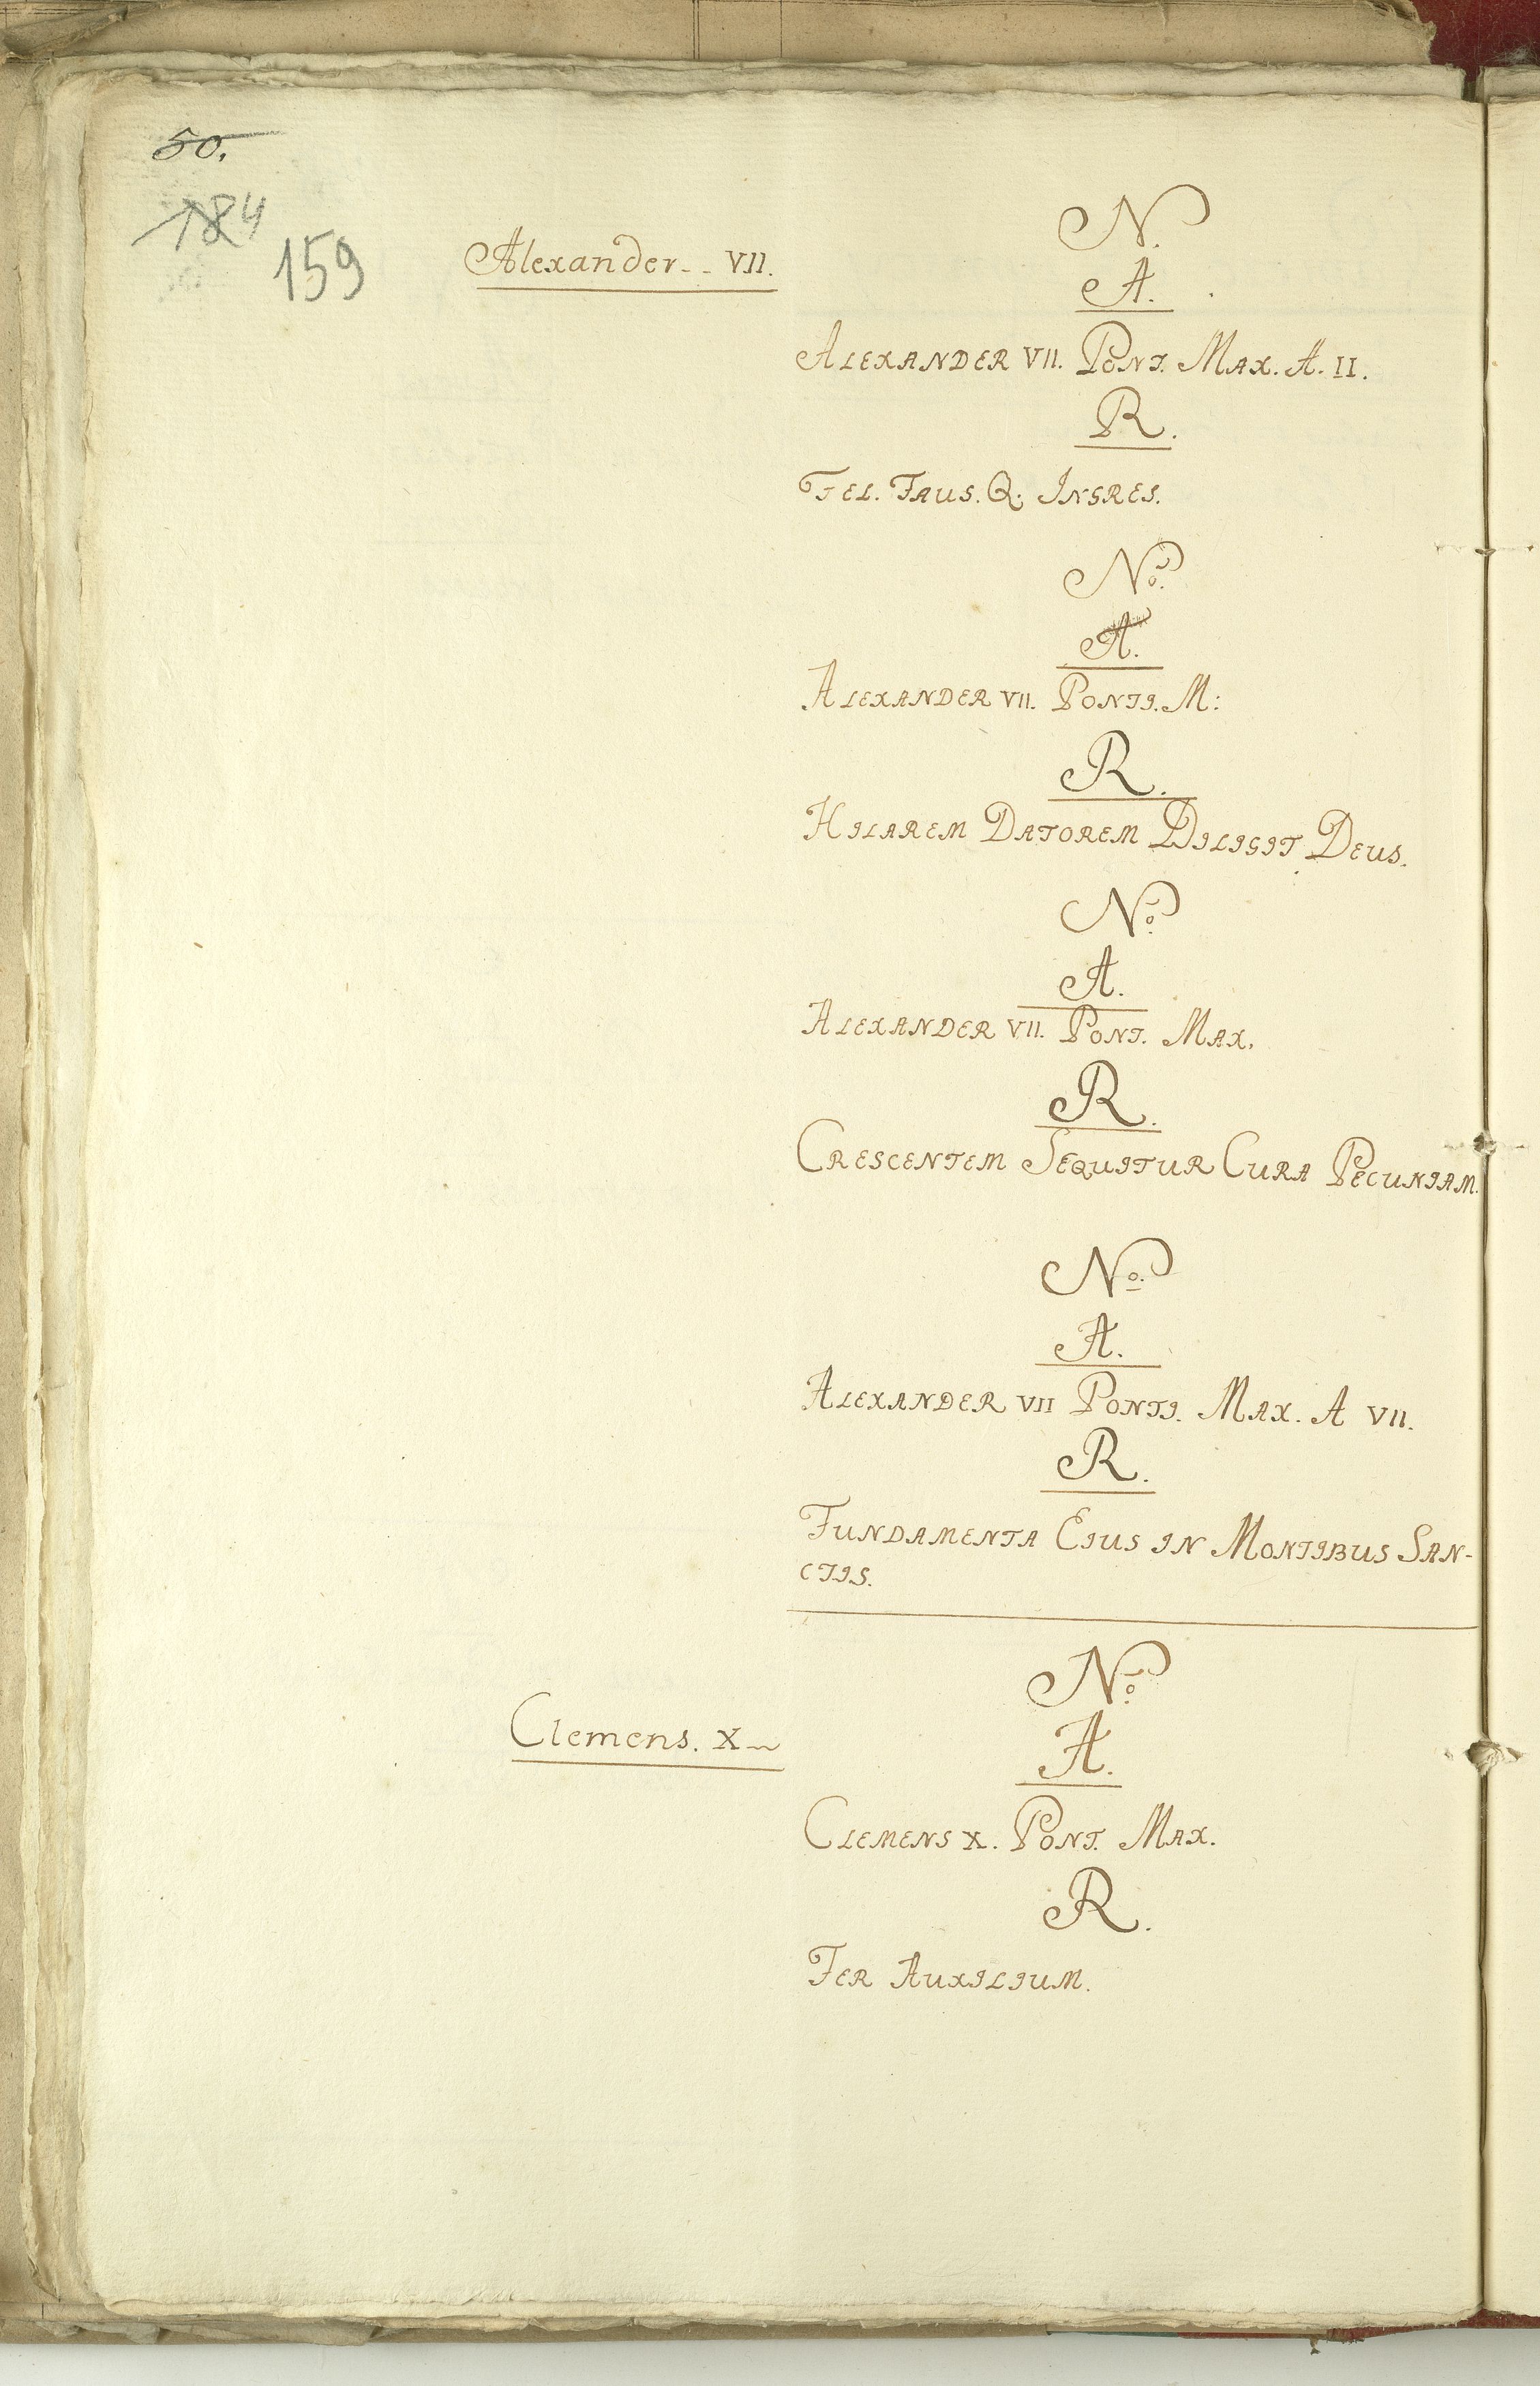 50.
184
159
Alexander - - VII.
N.
A.
ALEXANDER VII. PONT. MAX. A. II.
R.
FEL. FAUS. Q. INGRES.
No.
A.
ALEXANDER VII. PONTI. M:
R.
HILAREM DATOREM DILIGIT DEUS.
No.
A.
ALEXANDER VII. PONT. MAX.
R.
CRESCENTEM SEQUITUR CURA PECUNIAM.
No.
A.
ALEXANDER VII PONTI. MAX. A VII.
R.
FUNDAMENTA EIUS IN MONTIBUS SAN-
CTIS.
Clemens. X
No.
A.
CLEMENS X. PONT. MAX.
R.
FER AUXILIUM.